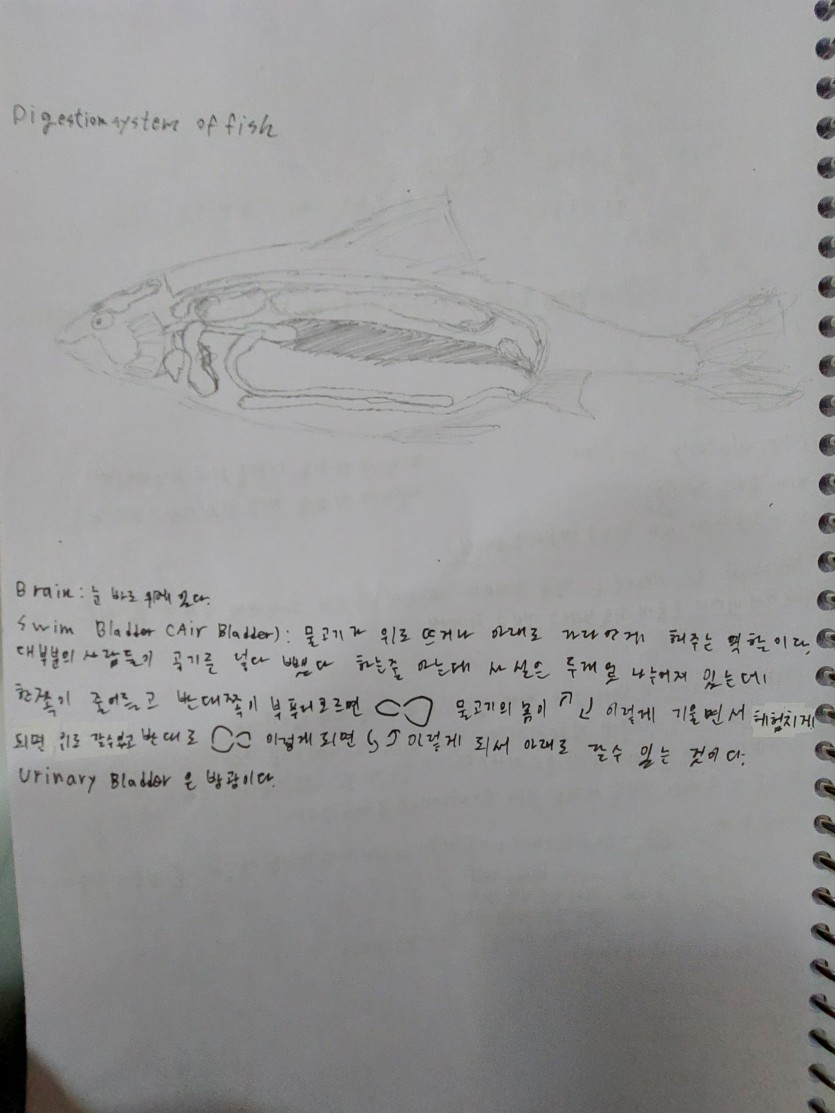 Digestion system of fish
Brain: 눈 바로 위에 있다.
Swim Bladder (Air Bladder): 물고기가 위로 뜨거나 아래로 가라앉게 해주는 역할이다.
대부분의 사람들이 공기를 넣다 뺐다 하는줄 아는데 사실은 두개로 나누어져 있는데
한쪽이 줄어들고 반대쪽이 부푸러오르면 물고기의 몸이 이렇게 기울면서
되면 위로 갈수있고 반대로 이렇게 되면 이렇게 되서 아래로 갈수 있는 것이다.
Urinary Bladder 은 방광이다.